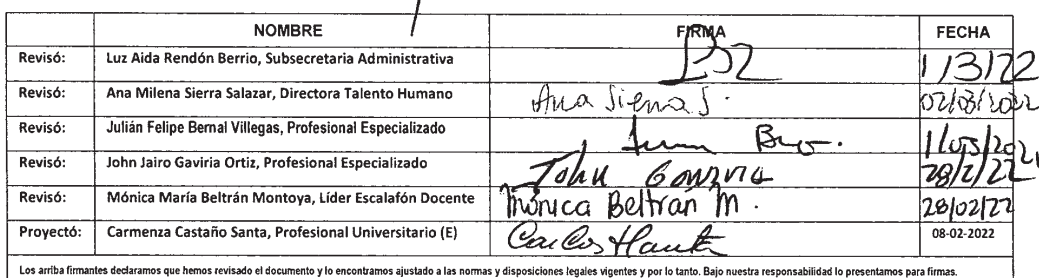 NOMBRE FIRMA FECHA
Revisó: Luz Aida Rendón Berrio, Subsecretaria Administrativa 1/3/22
Revisó: Ana Milena Sierra Salazar, Directora Talento Humano Ana Sierra S. 02/03/2022
Revisó: Julián Felipe Bernal Villegas, Profesional Especializado
Revisó: John Jairo Gaviria Ortiz, Profesional Especializado John Gaviria 28/2/22
Revisó: Mónica María Beltrán Montoya, Líder Escalafón Docente Mónica Beltrán M. 28/02/22
Proyectó: Carmenza Castaño Santa, Profesional Universitario (E) 08-02-2022
Los arriba firmantes declaramos que hemos revisado el documento y lo encontramos ajustado a las normas y disposiciones legales vigentes y por lo tanto. Bajo nuestra responsabilidad lo presentamos para firmas.